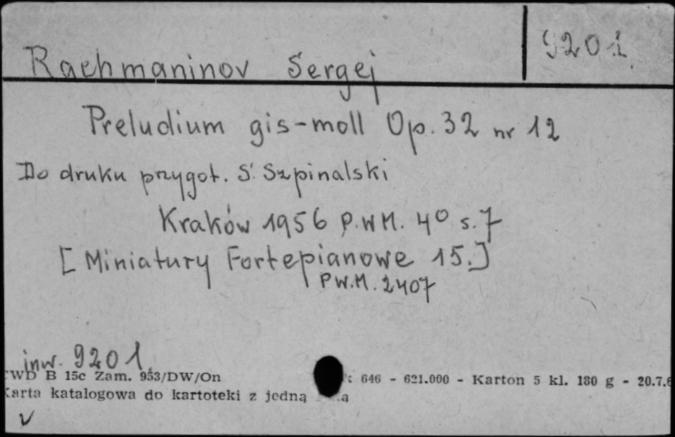 Rachmaninov Sergej
9201.
Preludium gis-moll Op. 32 nr 12
Do druku przygot. S. Szpinalski
Kraków 1956 P.W.M. 4° s. 7
[Miniatury Fortepianowe 15.]
P.W.M. 2407
inw. 9201.
WD B 15c Zam. 953/DW/On 646 - 621.000 - Karton 5 kl. 180 g - 20.7.6
Karta katalogowa do kartoteki z jedną